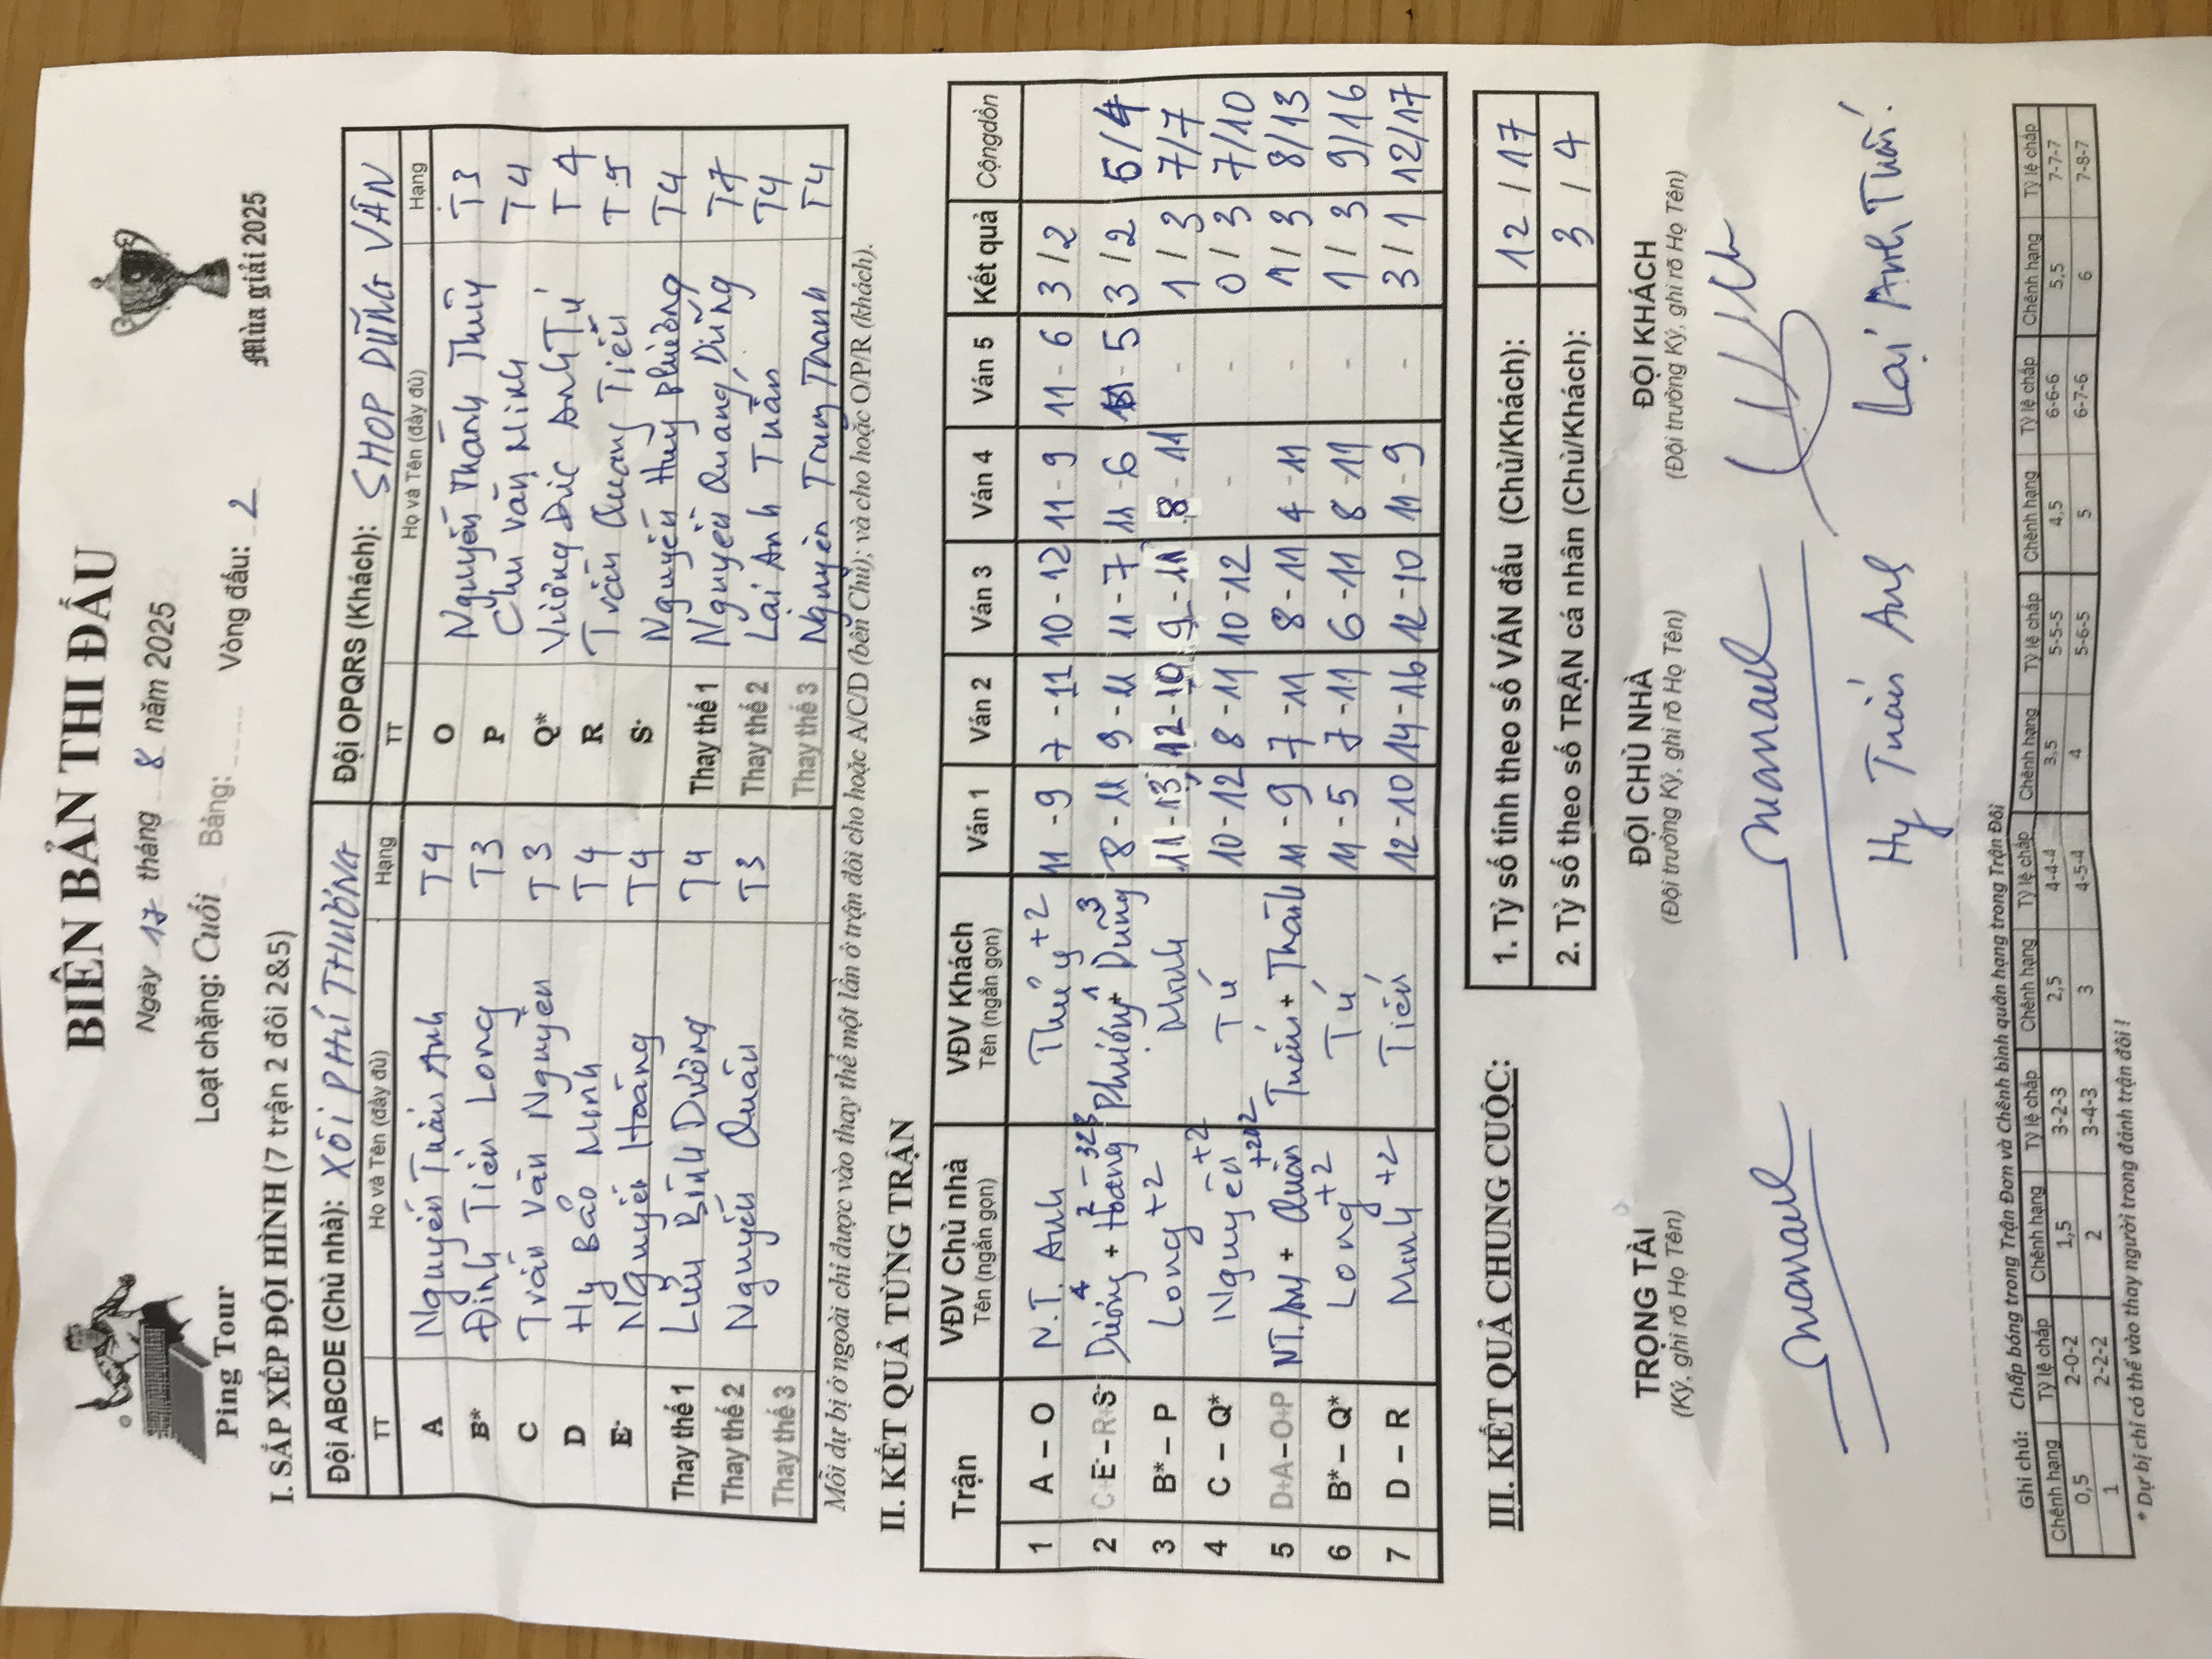 BIÊN BẢN THI ĐẤU
Ping Tour
Ngày 17 tháng 8 năm 2025
Mùa giải 2025
Loạt chặng: Cuối Bảng: Vòng đấu: 2
I. SẮP XẾP ĐỘI HÌNH (7 trận 2 đôi 2&5)
Đội ABCDE (Chủ nhà): XÔI PHÍ THƯỜNG Đội OPQRS (Khách): SHOP DŨNG VÂN
TT Họ và Tên (đầy đủ) Hạng TT Họ và Tên (đầy đủ) Hạng
A Nguyễn Tuấn Anh T4 O Nguyễn Thanh Thủy T3
B* Đinh Tiến Long T3 P Chu Văn Minh T4
C Trần Văn Nguyên T3 Q* Vương Đức Anh Tú T4
D Hy Bảo Minh T4 R Trần Quang Tiến T5
E- Nguyễn Hoàng T4 S- Nguyễn Huy Phường T4
Thay thế 1 Lưu Bình Dương T4 Thay thế 1 Nguyễn Quang Dũng T7
Thay thế 2 Nguyễn Quân T3 Thay thế 2 Lại Anh Tuấn T4
Thay thế 3 Thay thế 3 Nguyễn Trung Thanh T4
Mỗi dự bị ở ngoài chỉ được vào thay thế một lần ở trận đôi cho hoặc A/C/D (bên Chủ); và cho hoặc O/P/R (khách).
II. KẾT QUẢ TỪNG TRẬN
Trận VĐV Chủ nhà Tên (ngắn gọn) VĐV Khách Tên (ngắn gọn) Ván 1 Ván 2 Ván 3 Ván 4 Ván 5 Kết quả Cộngdồn
1 A – O N.T. Anh Thủy +2 11 - 9 7 - 11 10 - 12 11 - 9 11 - 6 3 / 2
2 C+E-–R+S- Dương + Hoàng Phường + Dũng 8 - 11 9 - 11 11 - 7 11 - 6 11 - 5 3 / 2 5/4
3 B* – P Long +2 Minh 11 - 13 12 - 10 9 - 11 8 - 11 - 1 / 3 7/7
4 C – Q* Nguyên +2 Tú 10 - 12 8 - 11 10 - 12 - - 0 / 3 7/10
5 D+A–O+P NT.Anh + Quân Tuấn + Thanh 11 - 9 7 - 11 8 - 11 4 - 11 - 1 / 3 8/13
6 B* – Q* Long +2 Tú 11 - 5 7 - 11 6 - 11 8 - 11 - 1 / 3 9/16
7 D – R Minh +2 Tiến 12 - 10 14 - 16 12 - 10 11 - 9 - 3 / 1 12/17
III. KẾT QUẢ CHUNG CUỘC:
1. Tỷ số tính theo số VÁN đấu (Chủ/Khách): 12 / 17
2. Tỷ số theo số TRẬN cá nhân (Chủ/Khách): 3 / 4
TRỌNG TÀI ĐỘI CHỦ NHÀ ĐỘI KHÁCH
(Ký, ghi rõ Họ Tên) (Đội trưởng Ký, ghi rõ Họ Tên) (Đội trưởng Ký, ghi rõ Họ Tên)
Hy Tuấn Anh Lại Anh Tuấn
Ghi chú: Chấp bóng trong Trận Đơn và Chênh bình quân hạng trong Trận Đôi
Chênh hạng Tỷ lệ chấp Chênh hạng Tỷ lệ chấp Chênh hạng Tỷ lệ chấp Chênh hạng Tỷ lệ chấp Chênh hạng Tỷ lệ chấp Chênh hạng Tỷ lệ chấp
0,5 2-0-2 1,5 3-2-3 2,5 4-4-4 3,5 5-5-5 4,5 6-6-6 5,5 7-7-7
1 2-2-2 2 3-4-3 3 4-5-4 4 5-6-5 5 6-7-6 6 7-8-7
* Dự bị chỉ có thể vào thay người trong đánh trận đôi !